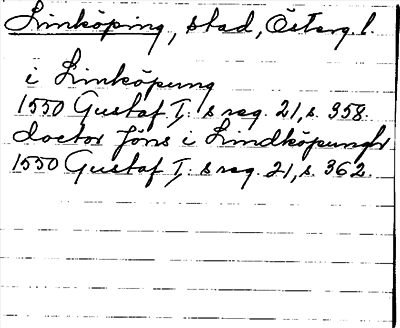 Linköping, stad, Österg. l.
i Linköpung
1550 Gustaf I:s reg. 21, s. 358.
doctor Jöns i Lindköpungh
1550 Gustaf I:s reg. 21, s. 362.